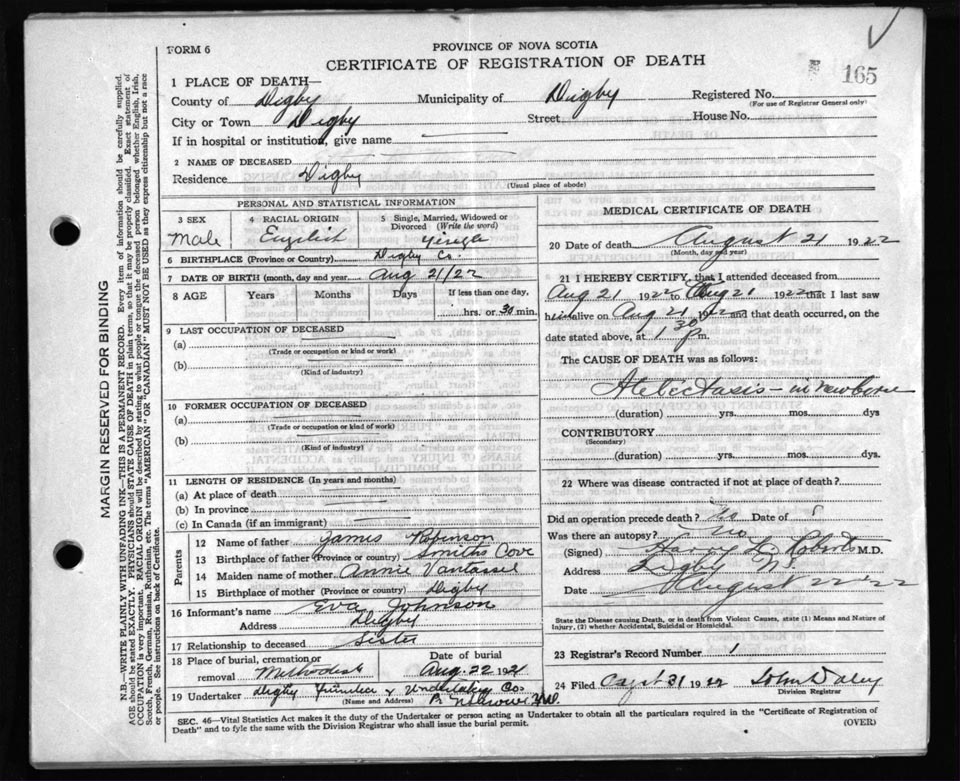 FORM 6
PROVINCE OF NOVA SCOTIA
CERTIFICATE OF REGISTRATION OF DEATH
165
1 PLACE OF DEATH—
County of Digby Municipality of Digby Registered No.
(For use of Registrar General only)
City or Town Digby Street House No.
If in hospital or institution, give name
2 NAME OF DECEASED
Residence Digby
(Usual place of abode)
PERSONAL AND STATISTICAL INFORMATION
3 SEX Male
4 RACIAL ORIGIN English
5 Single, Married, Widowed or Divorced (Write the word) Single
6 BIRTHPLACE (Province or Country) Digby Co.
7 DATE OF BIRTH (month, day and year) Aug 21/22
8 AGE Years Months Days If less than one day, hrs. or 30 min.
9 LAST OCCUPATION OF DECEASED
(a)
(Trade or occupation or kind of work)
(b)
(Kind of industry)
10 FORMER OCCUPATION OF DECEASED
(a)
(Trade or occupation or kind of work)
(b)
(Kind of industry)
11 LENGTH OF RESIDENCE (In years and months)
(a) At place of death
(b) In province
(c) In Canada (if an immigrant)
Parents
12 Name of father James Robinson
13 Birthplace of father (Province or country) Smiths Cove
14 Maiden name of mother Annie Vantassel
15 Birthplace of mother (Province or country) Digby
16 Informant's name Eva Johnson
Address Digby
17 Relationship to deceased Sister
18 Place of burial, cremation or removal Methodist
Date of burial Aug. 22 1921
19 Undertaker Digby Furniture & Undertaking Co.
(Name and Address)
MEDICAL CERTIFICATE OF DEATH
20 Date of death August 21 1922
(Month, day and year)
21 I HEREBY CERTIFY, that I attended deceased from
Aug 21 1922 to Aug 21 1922 that I last saw
him alive on Aug 21 1922 and that death occurred, on
date stated above, at 1 30 p m.
The CAUSE OF DEATH was as follows:
Atelectasis - in newborn
(duration) yrs. mos. dys
CONTRIBUTORY
(Secondary)
(duration) yrs. mos. dys.
22 Where was disease contracted if not at place of death?
Did an operation precede death? No Date of
Was there an autopsy? No
(Signed) Harry L. Roberts M.D.
Address Digby N.S.
Date August 22 '22
State the Disease causing Death, or in death from Violent Causes, state (1) Means and Nature of
Injury, (2) whether Accidental, Suicidal or Homicidal.
23 Registrar's Record Number 1
24 Filed 31 1922 John Daley
Division Registrar
SEC. 46—Vital Statistics Act makes it the duty of the Undertaker or person acting as Undertaker to obtain all the particulars required in the "Certificate of Registration of
Death" and to fyle the same with the Division Registrar who shall issue the burial permit. (OVER)
MARGIN RESERVED FOR BINDING
N.B.—WRITE PLAINLY WITH UNFADING INK—THIS IS A PERMANENT RECORD. Every item of information should be carefully supplied.
AGE should be stated EXACTLY. PHYSICIANS should STATE CAUSE OF DEATH in plain terms, so that it may be properly classified. Exact statement of
OCCUPATION is very important. RACIAL ORIGIN will be described by stating to what people or tongue the deceased person belonged whether English, Irish,
Scotch, French, German, Russian, Ruthenian, etc. The terms "AMERICAN" OR "CANADIAN" MUST NOT BE USED as they express citizenship but not a race
or people. See instructions on back of Certificate.